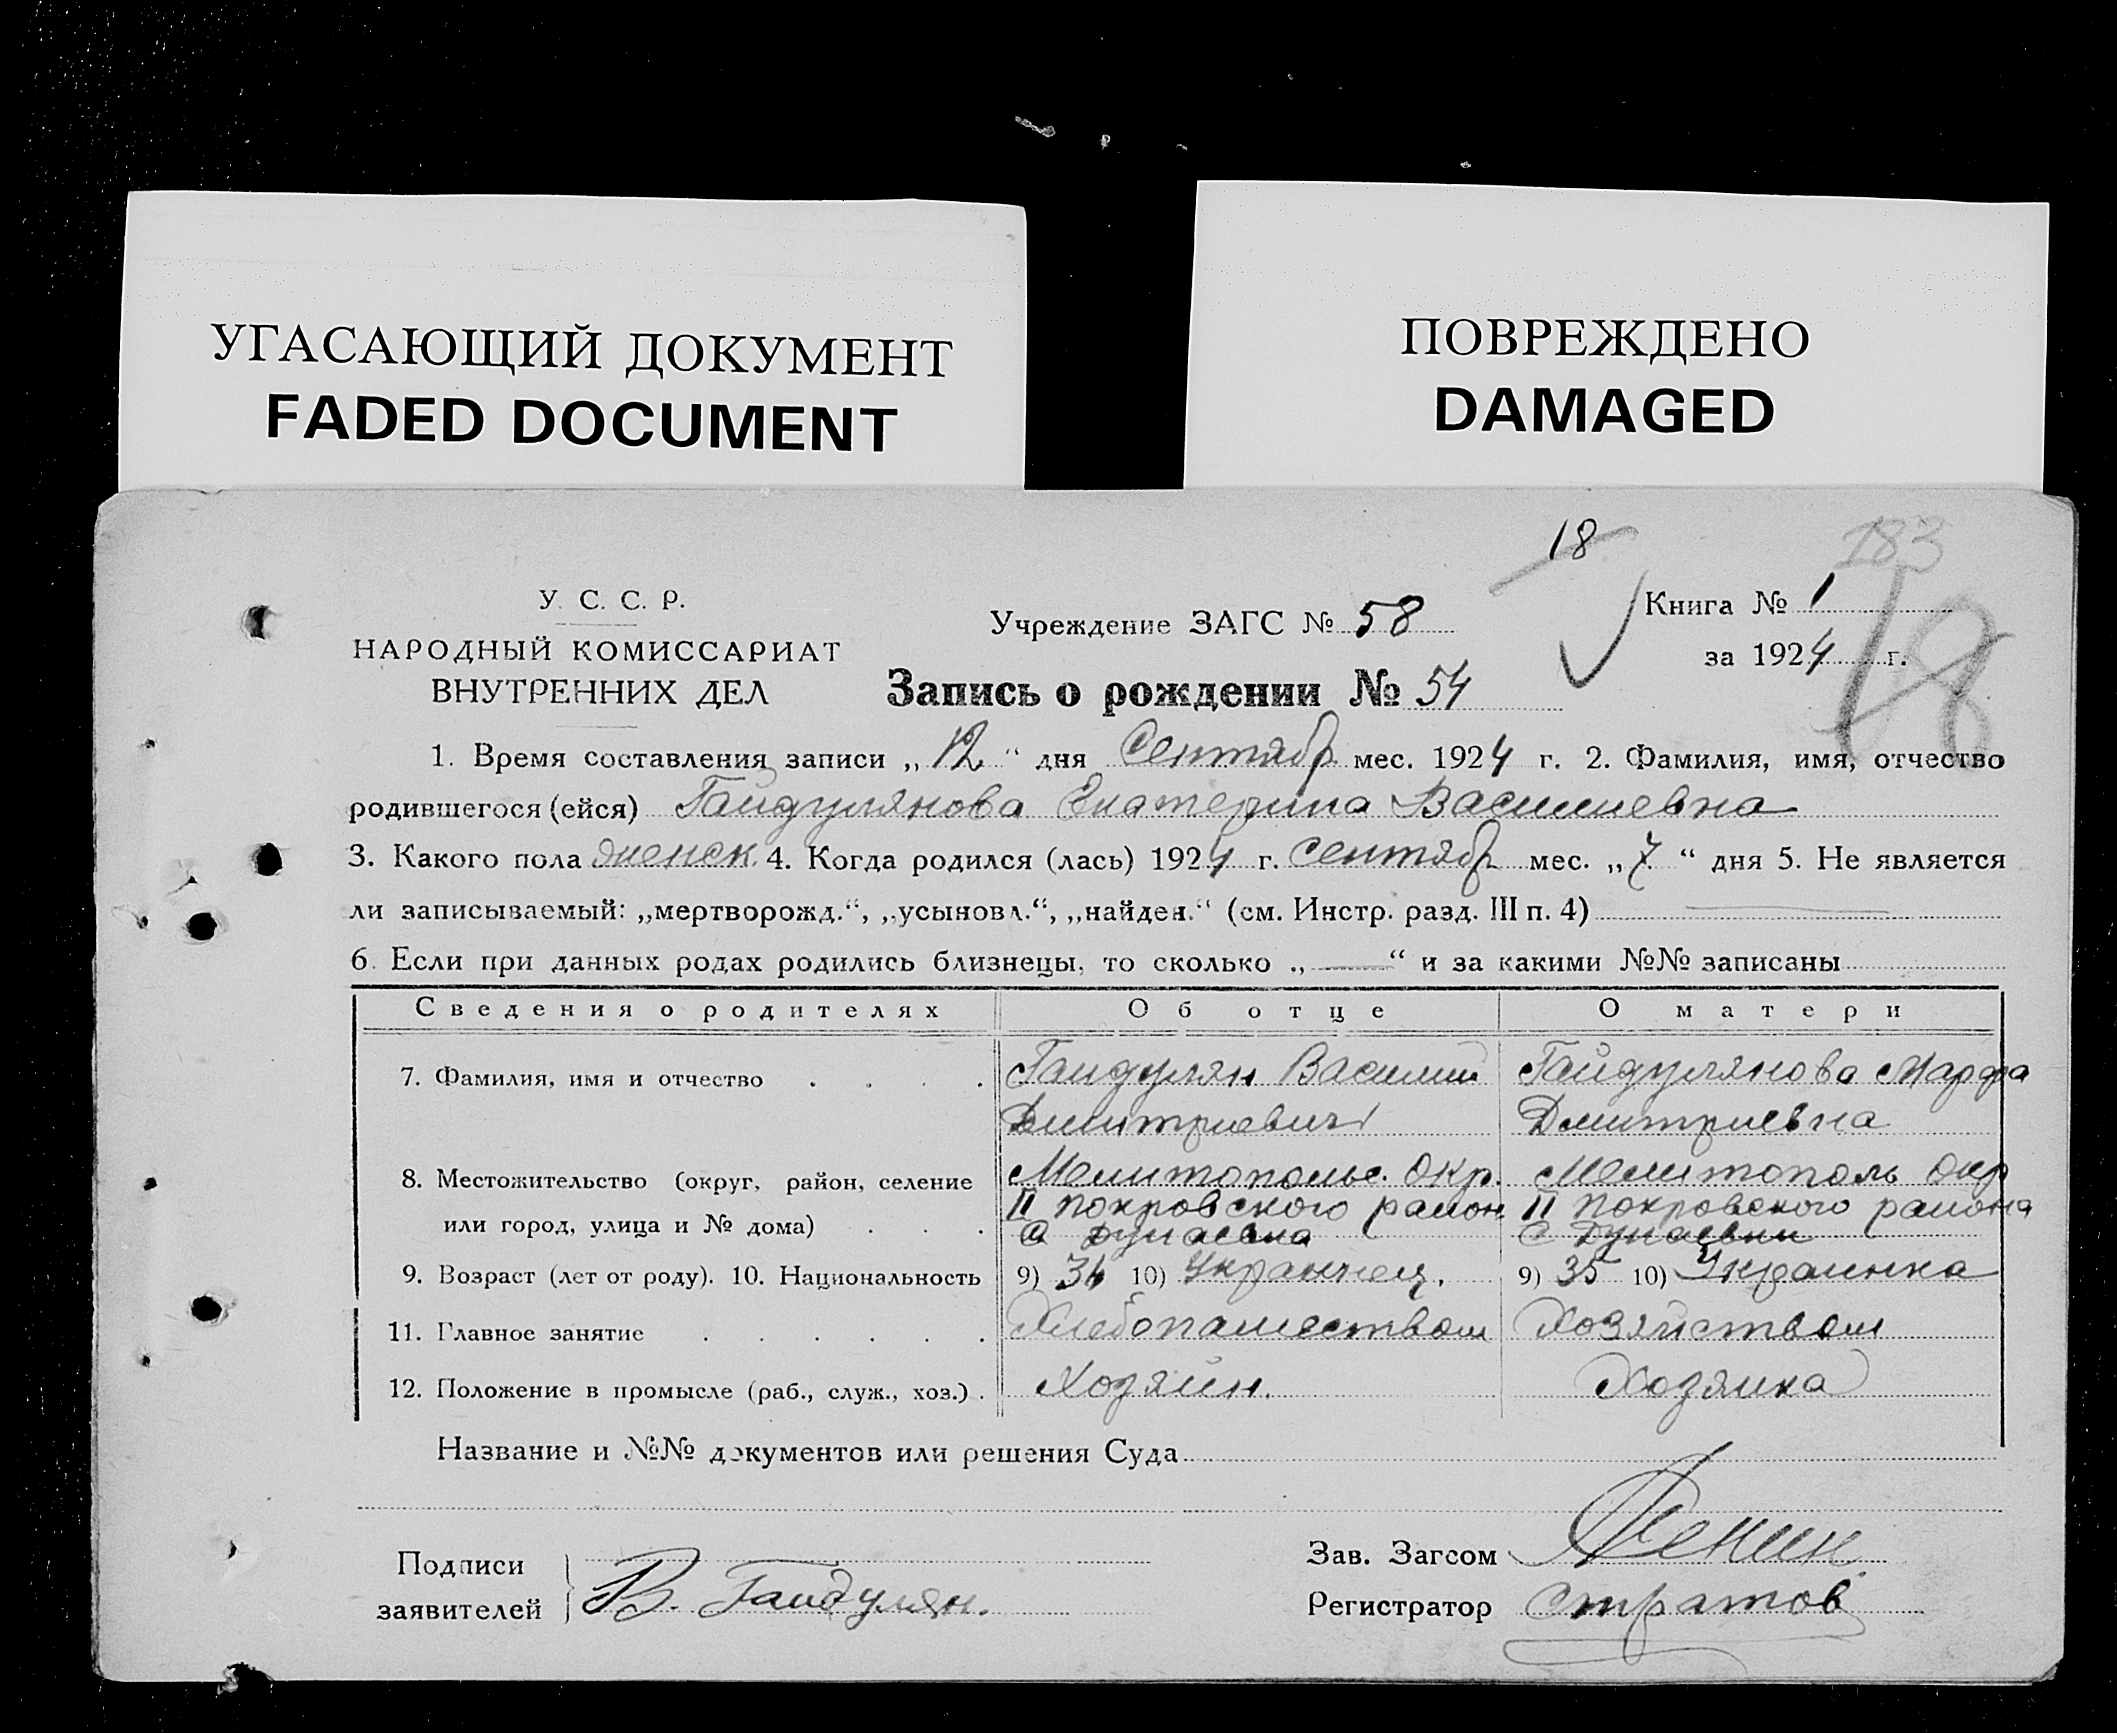 УГАСАЮЩИЙ ДОКУМЕНТ
FADED DOCUMENT
ПОВРЕЖДЕНО
DAMAGED
18
183
18
У. С. С. Р.
НАРОДНЫЙ КОМИССАРИАТ
ВНУТРЕННИХ ДЕЛ
Учреждение ЗАГС № 58
Книга № 1
за 1924 г.
Запись о рождении № 54
1. Время составления записи „12“ дня Сентябр мес. 1924 г. 2. Фамилия, имя, отчество
родившегося (ейся) Гайдулянова Екатерина Василиевна
3. Какого пола женск. 4. Когда родился (лась) 1924 г. сентябр мес. „7“ дня 5. Не является
ли записываемый: „мертворожд.“, „усыновл.“, „найден.“ (см. Инстр. разд. III п. 4)
6. Если при данных родах родились близнецы, то сколько „—“ и за какими №№ записаны
Сведения о родителях Об отце О матери
7. Фамилия, имя и отчество . . . . Гаидулян Василий Гайдулянова Марфа
Дмитриевич Дмитриевна
8. Местожительство (округ, район, селение Мелитополье. Окр. Мелитополь Окр
или город, улица и № дома) . . . II Покровского район II Покровского района
С Дунаевка С Дунаевки
9. Возраст (лет от роду). 10. Национальность 9) 36 10) Украинец. 9) 35 10) Украинка
11. Главное занятие . . . . . . Хлебопашеством Хозяйством
12. Положение в промысле (раб., служ., хоз.) . Хозяйн. Хозяика
Название и №№ документов или решения Суда
Подписи
заявителей В. Гаидулян.
Зав. Загсом
Регистратор Стратов